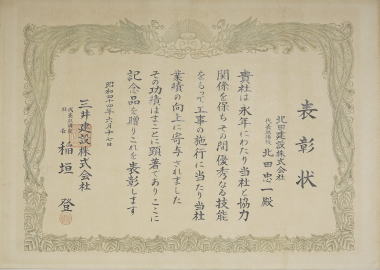 表彰状
北田建設株式会社
代表取締役 北田忠一殿
貴社は永年にわたり当社と協力
関係を保ちその間優秀なる技能
をもって工事の施行に当たり当社
業績の向上に寄与されました
その功績はまことに顕著でありここに
記念品を贈りこれを表彰します
昭和四十四年六月十七日
三井建設株式会社
稲垣登